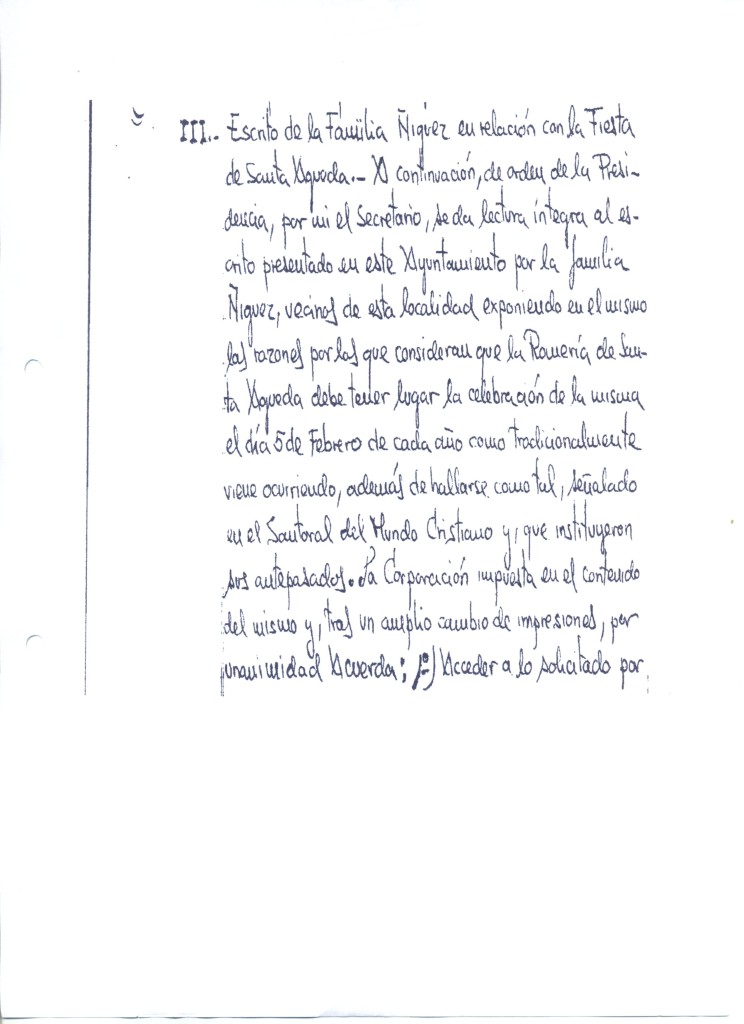 III.- Escrito de la Familia Ñiguez en relación con la Fiesta
de Santa Agueda.- A continuación, de orden de la Presi-
dencia, por mi el Secretario, se da lectura íntegra al es-
crito presentado en este Ayuntamiento por la familia
Ñiguez, vecinos de esta localidad exponiendo en el mismo
las razones por las que consideran que la Romería de San-
ta Agueda debe tener lugar la celebración de la misma
el día 5 de Febrero de cada año como tradicionalmente
viene ocurriendo, además de hallarse como tal, señalado
en el Santoral del Mundo Cristiano y, que instituyeron
sus antepasados. La Corporación impuesta en el contenido
del mismo y, tras un amplio cambio de impresiones, por
unanimidad Acuerda: 1º) Acceder a lo solicitado por